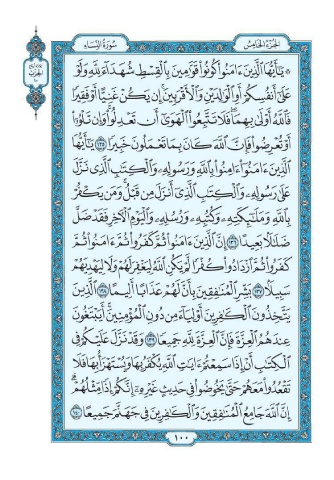 الجزء الخامس
سورة النساء
۞ يَٰٓأَيُّهَا ٱلَّذِينَ ءَامَنُوا۟ كُونُوا۟ قَوَّٰمِينَ بِٱلْقِسْطِ شُهَدَآءَ لِلَّهِ وَلَوْ
عَلَىٰٓ أَنفُسِكُمْ أَوِ ٱلْوَٰلِدَيْنِ وَٱلْأَقْرَبِينَ إِن يَكُنْ غَنِيًّا أَوْ فَقِيرًا
فَٱللَّهُ أَوْلَىٰ بِهِمَا فَلَا تَتَّبِعُوا۟ ٱلْهَوَىٰٓ أَن تَعْدِلُوا۟ وَإِن تَلْوُۥٓا۟
أَوْ تُعْرِضُوا۟ فَإِنَّ ٱللَّهَ كَانَ بِمَا تَعْمَلُونَ خَبِيرًا ١٣٥ يَٰٓأَيُّهَا
ٱلَّذِينَ ءَامَنُوٓا۟ ءَامِنُوا۟ بِٱللَّهِ وَرَسُولِهِۦ وَٱلْكِتَٰبِ ٱلَّذِى نَزَّلَ
عَلَىٰ رَسُولِهِۦ وَٱلْكِتَٰبِ ٱلَّذِىٓ أَنزَلَ مِن قَبْلُ وَمَن يَكْفُرْ
بِٱللَّهِ وَمَلَٰٓئِكَتِهِۦ وَكُتُبِهِۦ وَرُسُلِهِۦ وَٱلْيَوْمِ ٱلْءَاخِرِ فَقَدْ ضَلَّ
ضَلَٰلًۢا بَعِيدًا ١٣٦ إِنَّ ٱلَّذِينَ ءَامَنُوا۟ ثُمَّ كَفَرُوا۟ ثُمَّ ءَامَنُوا۟ ثُمَّ
كَفَرُوا۟ ثُمَّ ٱزْدَادُوا۟ كُفْرًا لَّمْ يَكُنِ ٱللَّهُ لِيَغْفِرَ لَهُمْ وَلَا لِيَهْدِيَهُمْ
سَبِيلًۢا ١٣٧ بَشِّرِ ٱلْمُنَٰفِقِينَ بِأَنَّ لَهُمْ عَذَابًا أَلِيمًا ١٣٨ ٱلَّذِينَ
يَتَّخِذُونَ ٱلْكَٰفِرِينَ أَوْلِيَآءَ مِن دُونِ ٱلْمُؤْمِنِينَ أَيَبْتَغُونَ
عِندَهُمُ ٱلْعِزَّةَ فَإِنَّ ٱلْعِزَّةَ لِلَّهِ جَمِيعًا ١٣٩ وَقَدْ نَزَّلَ عَلَيْكُمْ فِى
ٱلْكِتَٰبِ أَنْ إِذَا سَمِعْتُمْ ءَايَٰتِ ٱللَّهِ يُكْفَرُ بِهَا وَيُسْتَهْزَأُ بِهَا فَلَا
تَقْعُدُوا۟ مَعَهُمْ حَتَّىٰ يَخُوضُوا۟ فِى حَدِيثٍ غَيْرِهِۦٓ إِنَّكُمْ إِذًا مِّثْلُهُمْ
إِنَّ ٱللَّهَ جَامِعُ ٱلْمُنَٰفِقِينَ وَٱلْكَٰفِرِينَ فِى جَهَنَّمَ جَمِيعًا ١٤٠
١٠٠